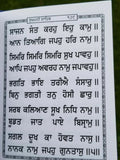 ਸਾਜਨ ਸੰਤ ਕਰਹੁ ਇਹੁ ਕਾਮੁ ॥
ਆਨ ਤਿਆਗਿ ਜਪਹੁ ਹਰਿ ਨਾਮੁ ॥
ਸਿਮਰਿ ਸਿਮਰਿ ਸਿਮਰਿ ਸੁਖ ਪਾਵਹੁ ॥
ਆਪਿ ਜਪਹੁ ਅਵਰਹ ਨਾਮੁ ਜਪਾਵਹੁ ॥
ਭਗਤਿ ਭਾਇ ਤਰੀਐ ਸੰਸਾਰੁ ॥
ਬਿਨੁ ਭਗਤੀ ਤਨੁ ਹੋਸੀ ਛਾਰੁ ॥
ਸਰਬ ਕਲਿਆਣ ਸੂਖ ਨਿਧਿ ਨਾਮੁ ॥
ਬੂਡਤ ਜਾਤ ਪਾਏ ਬਿਸ੍ਰਾਮੁ ॥
ਸਗਲ ਦੂਖ ਕਾ ਹੋਵਤ ਨਾਸੁ ॥
ਨਾਨਕ ਨਾਮੁ ਜਪਹੁ ਗੁਨਤਾਸੁ ॥੫॥